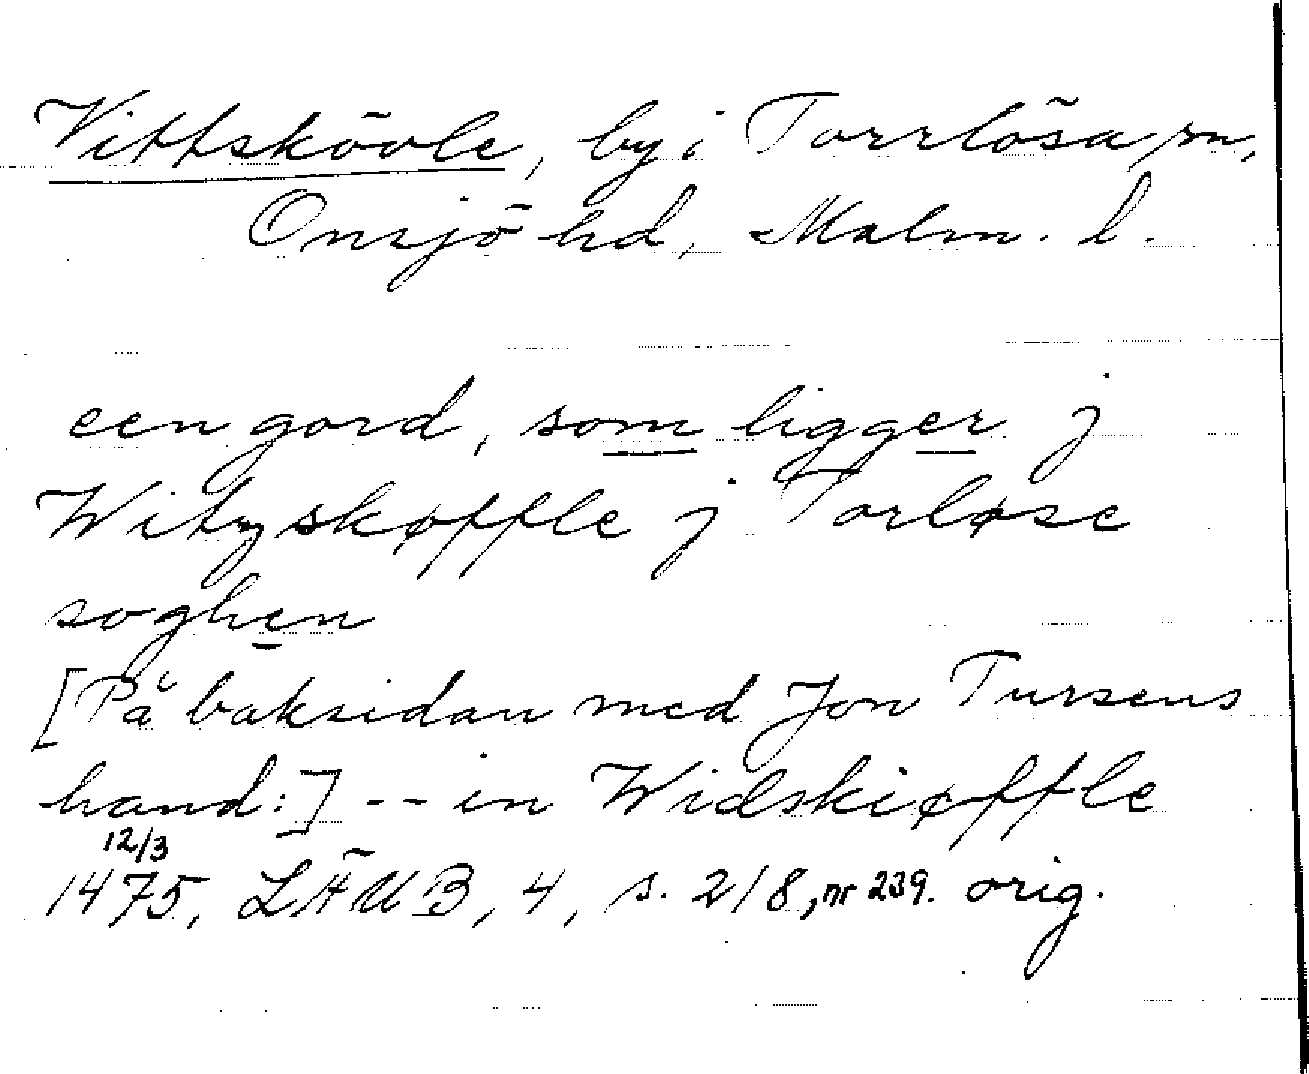 Vittskövle, by i Torrlösa sn,
Onsjö hd, Malm. l.
een gord, som ligger j
Witzskøffle j Torløse
soghen
[På baksidan med Jon Tursens
hand:] -- in Widskiøffle
12/3
1475, LÄUB, 4, s. 218, nr 239. orig.